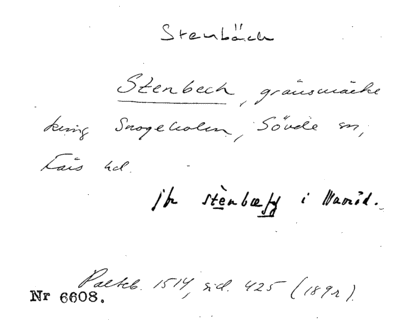 Stenbäck
Stenbeck, gränsmärke
kring Snogeholm, Sövde sn,
Färs hd.
jfr stenbæk i Vanröd.
Palteb. 1514, sid. 425 (189r).
Nr 6608.